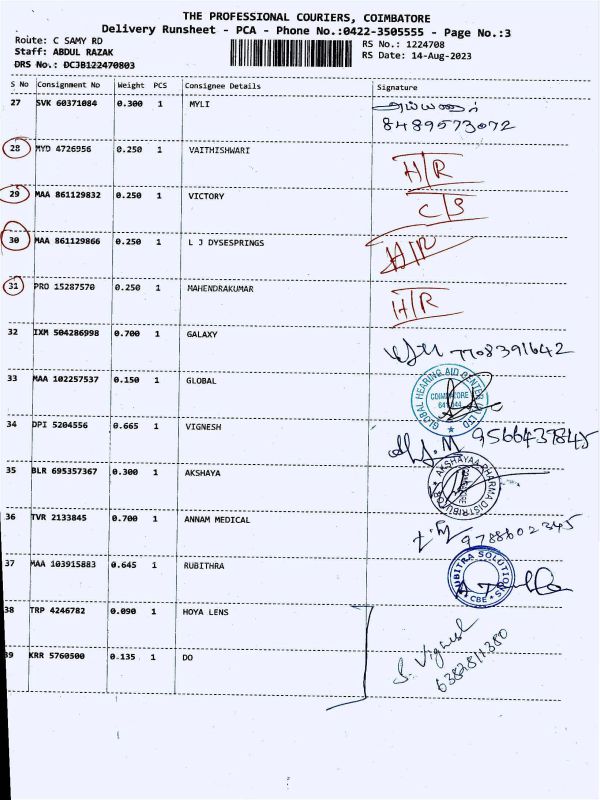 THE PROFESSIONAL COURIERS, COIMBATORE
Delivery Runsheet - PCA - Phone No.:0422-3505555 - Page No.:3
Route: C SAMY RD
RS No.: 1224708
Staff: ABDUL RAZAK
RS Date: 14-Aug-2023
DRS No.: DCJB122470803
S No Consignment No Weight PCS Consignee Details Signature
27 SVK 60371084 0.300 1 MYLI அய்யனார்
8489573072
28 MYD 4726956 0.250 1 VAITHISHWARI H/R
29 MAA 861129832 0.250 1 VICTORY C/S
30 MAA 861129866 0.250 1 L J DYSESPRINGS H/R
31 PRO 15287570 0.250 1 MAHENDRAKUMAR H/R
32 IXM 504286998 0.700 1 GALAXY 7708391642
33 MAA 102257537 0.150 1 GLOBAL GLOBAL HEARING AID CENTER LTD COIMBATORE
34 DPI 5204556 0.665 1 VIGNESH 9566439845
35 BLR 695357367 0.300 1 AKSHAYA AKSHAYAA PHARMA DISTRIBUTORS
36 TVR 2133845 0.700 1 ANNAM MEDICAL 9788602345
37 MAA 103915883 0.645 1 RUBITHRA RUBITRA SOLUTIONS CBE
38 TRP 4246782 0.090 1 HOYA LENS S. Vignesh
39 KRR 5760500 0.135 1 DO 6382811380